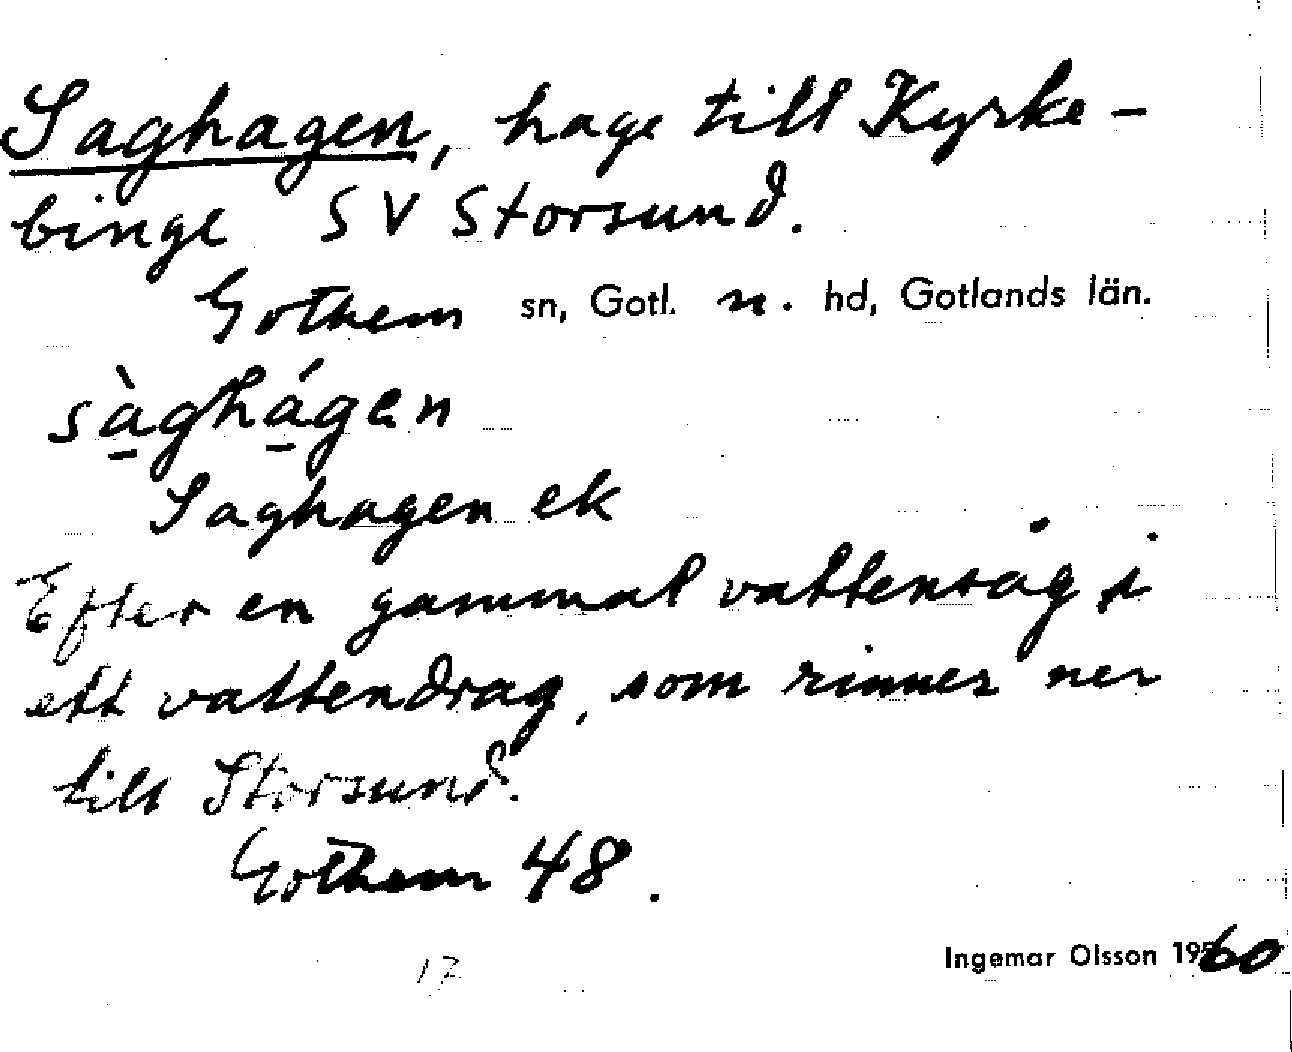 Saghagen, hage till Kyrke-
binge SV Storsund.
Gothem sn, Gotl. n. hd, Gotlands län.
sàghágen
Saghagen ek
Efter en gammal vattensåg i
ett vattendrag, som rinner ner
till Storsund.
Gothem 48.
Ingemar Olsson 1960
17